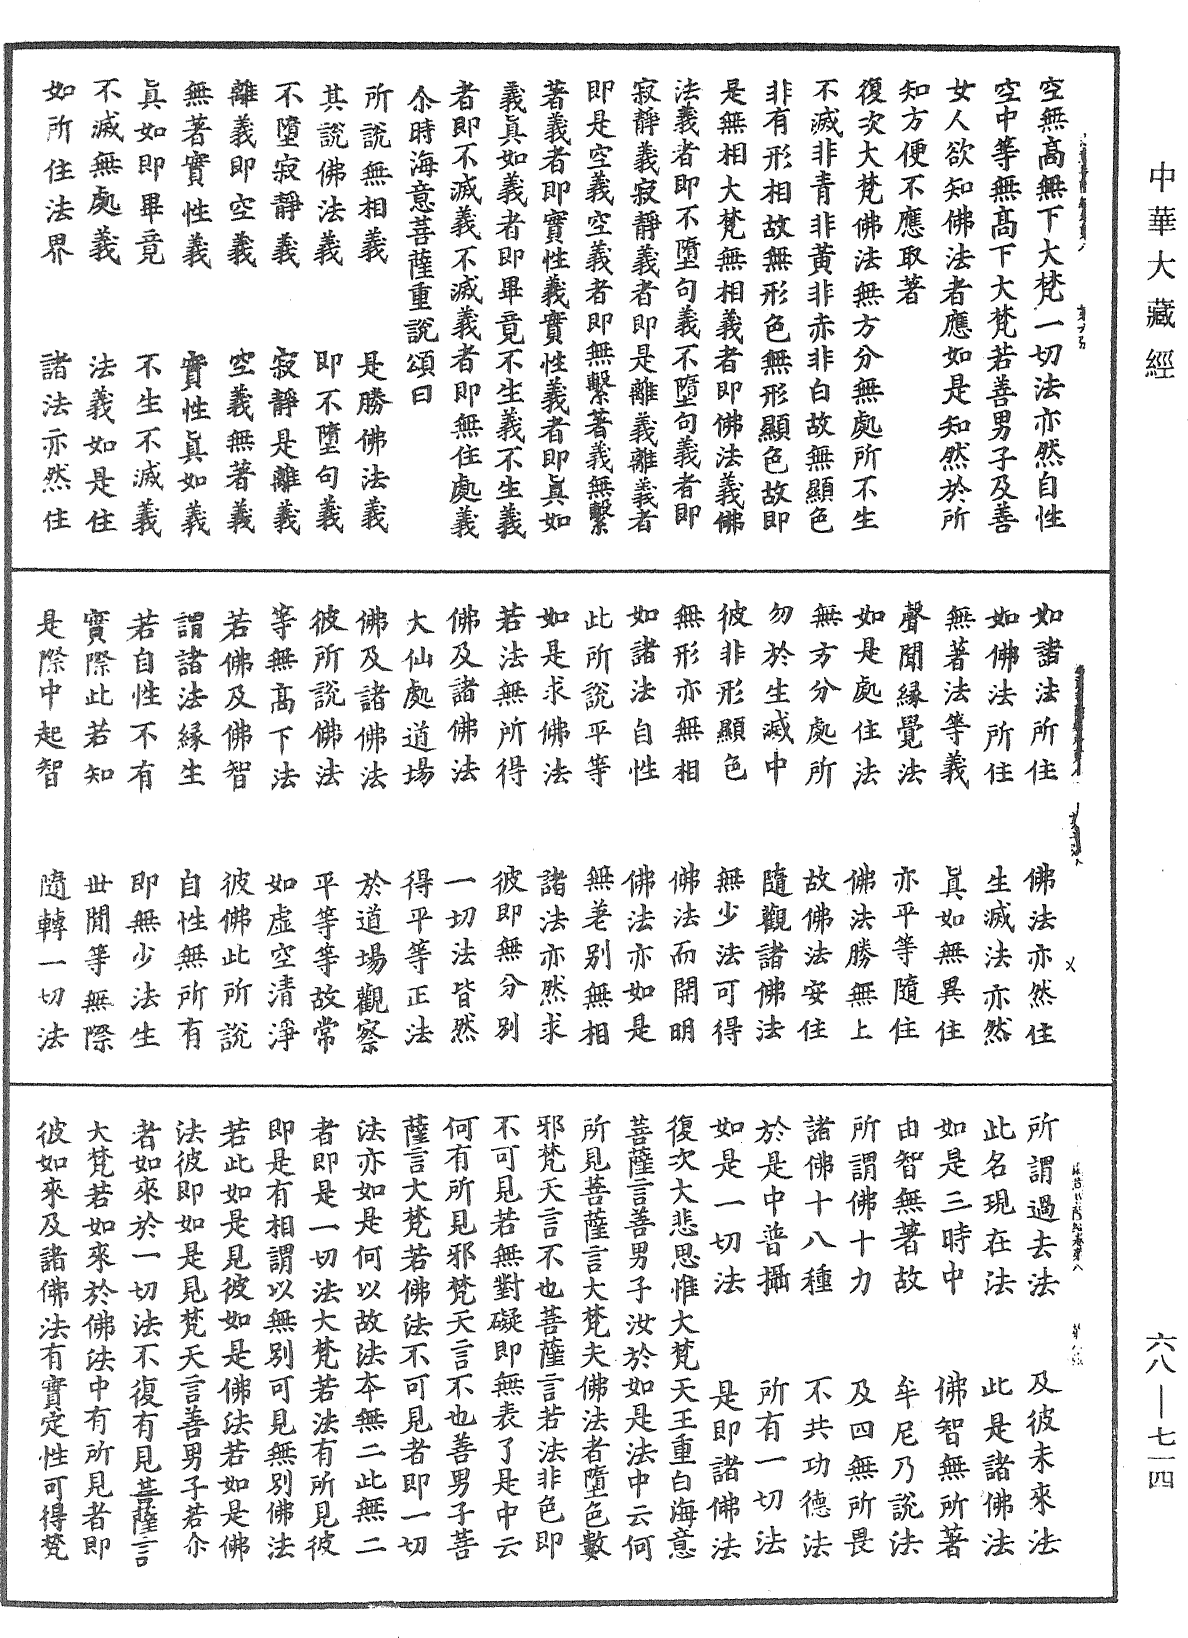 中華大藏經
空無高無下大梵一切法亦然自性
空中等無高下大梵若善男子及善
女人欲知佛法者應如是知然於所
知方便不應取著
復次大梵佛法無方分無處所不生
不滅非青非黃非赤非白故無顯色
非有形相故無形色無形顯色故即
是無相大梵無相義者即佛法義佛
法義者即不墮句義不墮句義者即
寂靜義寂靜義者即是離義離義者
即是空義空義者即無繫著義無繫
著義者即實性義實性義者即眞如
義眞如義者即畢竟不生義不生義
者即不滅義不滅義者即無住處義
尒時海意菩薩重說頌曰
所說無相義　是勝佛法義
其說佛法義　即不墮句義
不墮寂靜義　寂靜是離義
離義即空義　空義無著義
無著實性義　實性眞如義
眞如即畢竟　不生不滅義
不滅無處義　法義如是住
如所住法界　諸法亦然住
如諸法所住　佛法亦然住
如佛法所住　生滅法亦然
無著法等義　眞如無異住
聲聞緣覺法　亦平等隨住
如是處住法　佛法勝無上
無方分處所　故佛法安住
勿於生滅中　隨觀諸佛法
彼非形顯色　無少法可得
無形亦無相　佛法而開明
如諸法自性　佛法亦如是
此所說平等　無差別無相
如是求佛法　諸法亦然求
若法無所得　彼即無分別
佛及諸佛法　一切法皆然
大仙處道場　得平等正法
佛及諸佛法　於道場觀察
彼所說佛法　平等等故常
等無高下法　如虛空清淨
若佛及佛智　彼佛此所說
謂諸法緣生　自性無所有
若自性不有　即無少法生
實際此若知　世間等無際
是際中起智　隨轉一切法
所謂過去法　及彼未來法
此名現在法　此是諸佛法
如是三時中　佛智無所著
由智無著故　牟尼乃說法
所謂佛十力　及四無所畏
諸佛十八種　不共功德法
於是中普攝　所有一切法
如是一切法　是即諸佛法
復次大悲思惟大梵天王重白海意
菩薩言善男子汝於如是法中云何
所見菩薩言大梵夫佛法者墮色數
邪梵天言不也菩薩言若法非色即
不可見若無對礙即無表了是中云
何有所見邪梵天言不也善男子菩
薩言大梵若佛法不可見者即一切
法亦如是何以故法本無二此無二
者即是一切法大梵若法有所見彼
即是有相謂以無別可見無別佛法
若此如是見彼如是佛法若如是佛
法彼即如是見梵天言善男子若尒
者如來於一切法不復有見菩薩言
大梵若如來於佛法中有所見者即
彼如來及諸佛法有實定性可得梵
六八—七一四